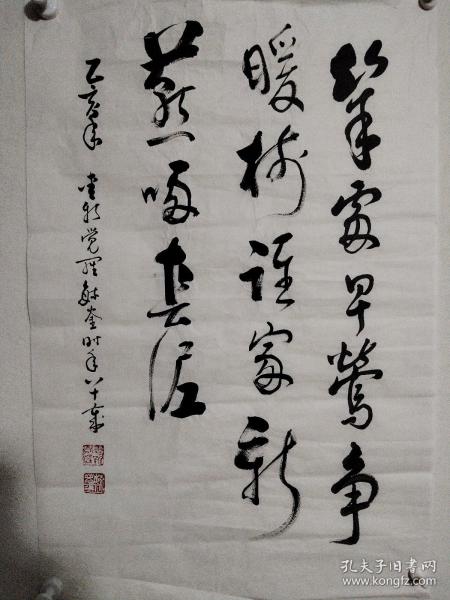 几处早莺争
暖树谁家新
燕啄春泥
乙亥年 爱新觉罗毓奎时年八十岁
孔夫子旧书网
www.kongfz.com